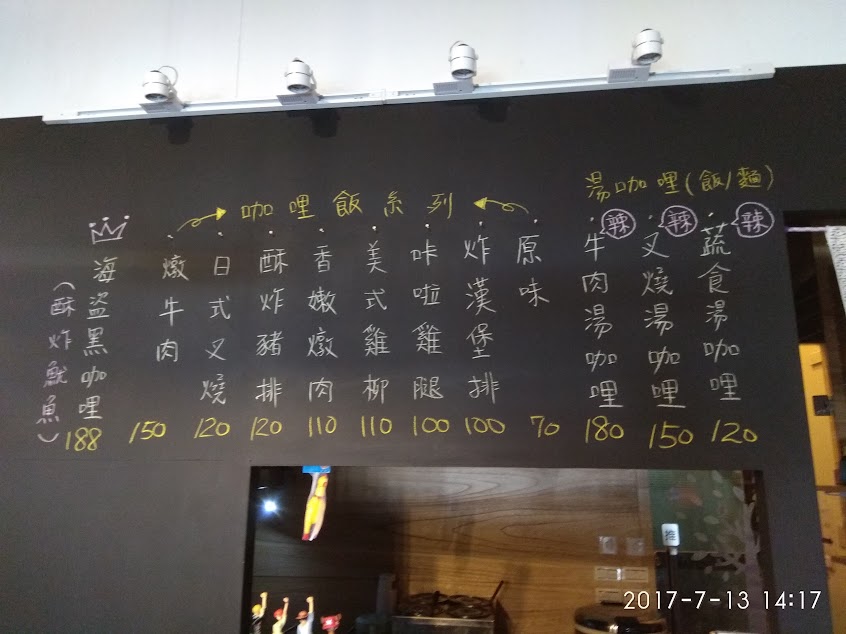 湯咖哩(飯/麵)
蔬食湯咖哩 辣 120
叉燒湯咖哩 辣 150
牛肉湯咖哩 辣 180
咖哩飯系列
原味 70
炸漢堡排 100
咔啦雞腿 100
美式雞柳 110
香嫩燉肉 110
酥炸豬排 120
日式叉燒 120
燉牛肉 150
海盜黑咖哩 188
(酥炸魷魚)
推
2017-7-13 14:17